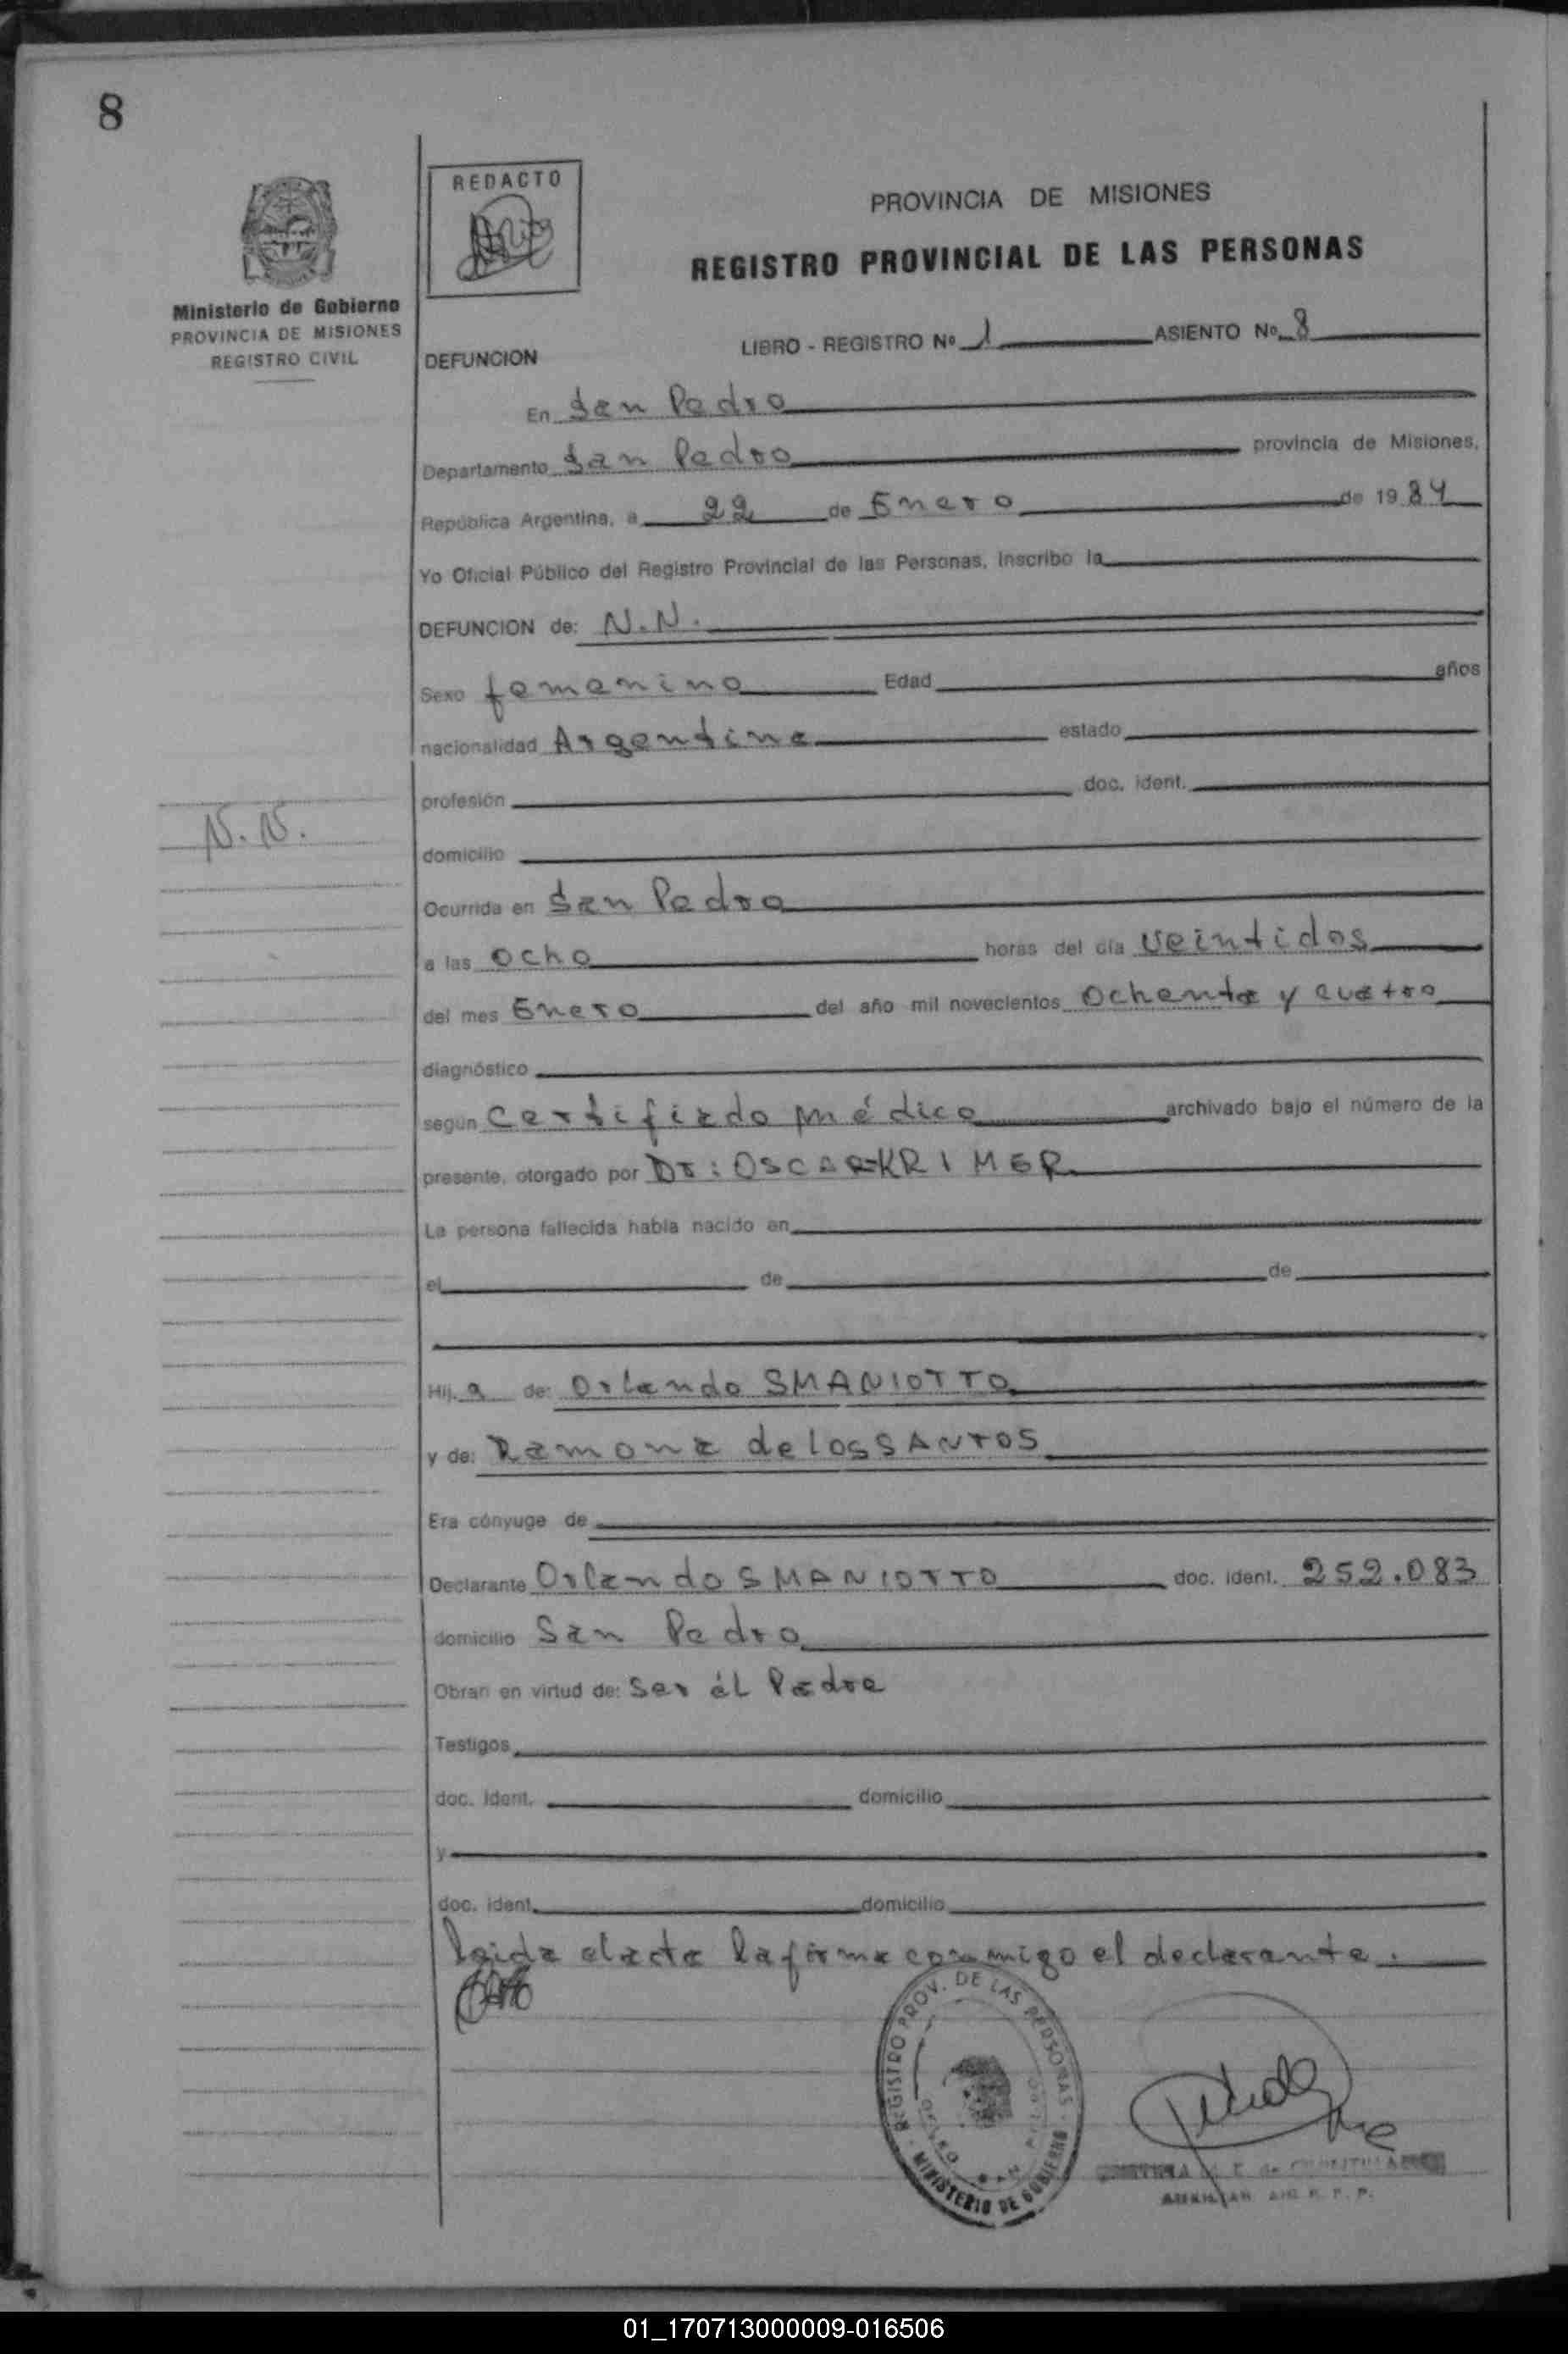 8
REDACTO
PROVINCIA DE MISIONES
REGISTRO PROVINCIAL DE LAS PERSONAS
Ministerio de Gobierno
PROVINCIA DE MISIONES
REGISTRO CIVIL
LIBRO - REGISTRO Nº 1 ASIENTO Nº 8
DEFUNCION
En San Pedro
Departamento San Pedro provincia de Misiones,
República Argentina, a 22 de Enero de 1984
Yo Oficial Público del Registro Provincial de las Personas, inscribo la
DEFUNCION de: N.N.
Sexo femenino Edad años
nacionalidad Argentina estado
profesión doc. ident.
N.N.
domicilio
Ocurrida en San Pedro
a las Ocho horas del día veintidos
del mes Enero del año mil novecientos Ochenta y cuatro
diagnóstico
según Certifizdo médico archivado bajo el número de la
presente, otorgado por Dr: OSCAR KRIMER
La persona fallecida había nacido en
el de de
Hij a de: Orlando SMANIOTTO
y de: Ramona de los SANTOS
Era cónyuge de
Declarante Orlando SMANIOTTO doc. ident. 252.083
domicilio San Pedro
Obran en virtud de: Ser él Padre
Testigos
doc. ident. domicilio
y
doc. ident. domicilio
leida el acta la firma conmigo el declarante.
REGISTRO PROV. DE LAS PERSONAS
MINISTERIO DE GOBIERNO
01_170713000009-016506